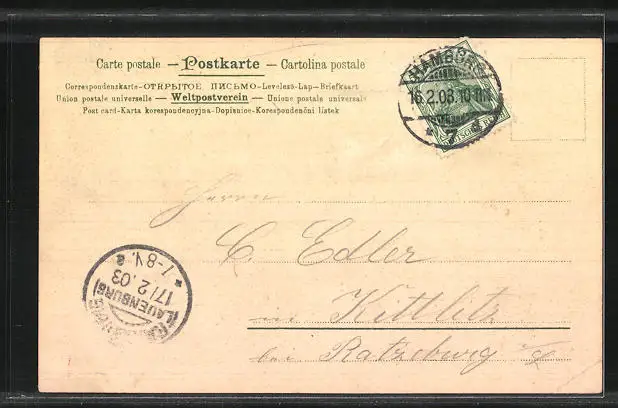 Carte postale — Postkarte — Cartolina postale
Correspondenzkarte-ОТКРЫТОЕ ПИСЬМО-Levelező-Lap-Briefkaart
Union postale universelle — Weltpostverein — Unione postale universale
Post card-Karta korespondencyjna-Dopisnice-Korespondenční lístek
HAMBURG
16.2.03.10-11N.
* 7 d
DEUTSCHES REICH
Herrn
C. Edler
in Kittlitz
bei Ratzeburg
LAUENBURG
17/2.03
*7-8V. a